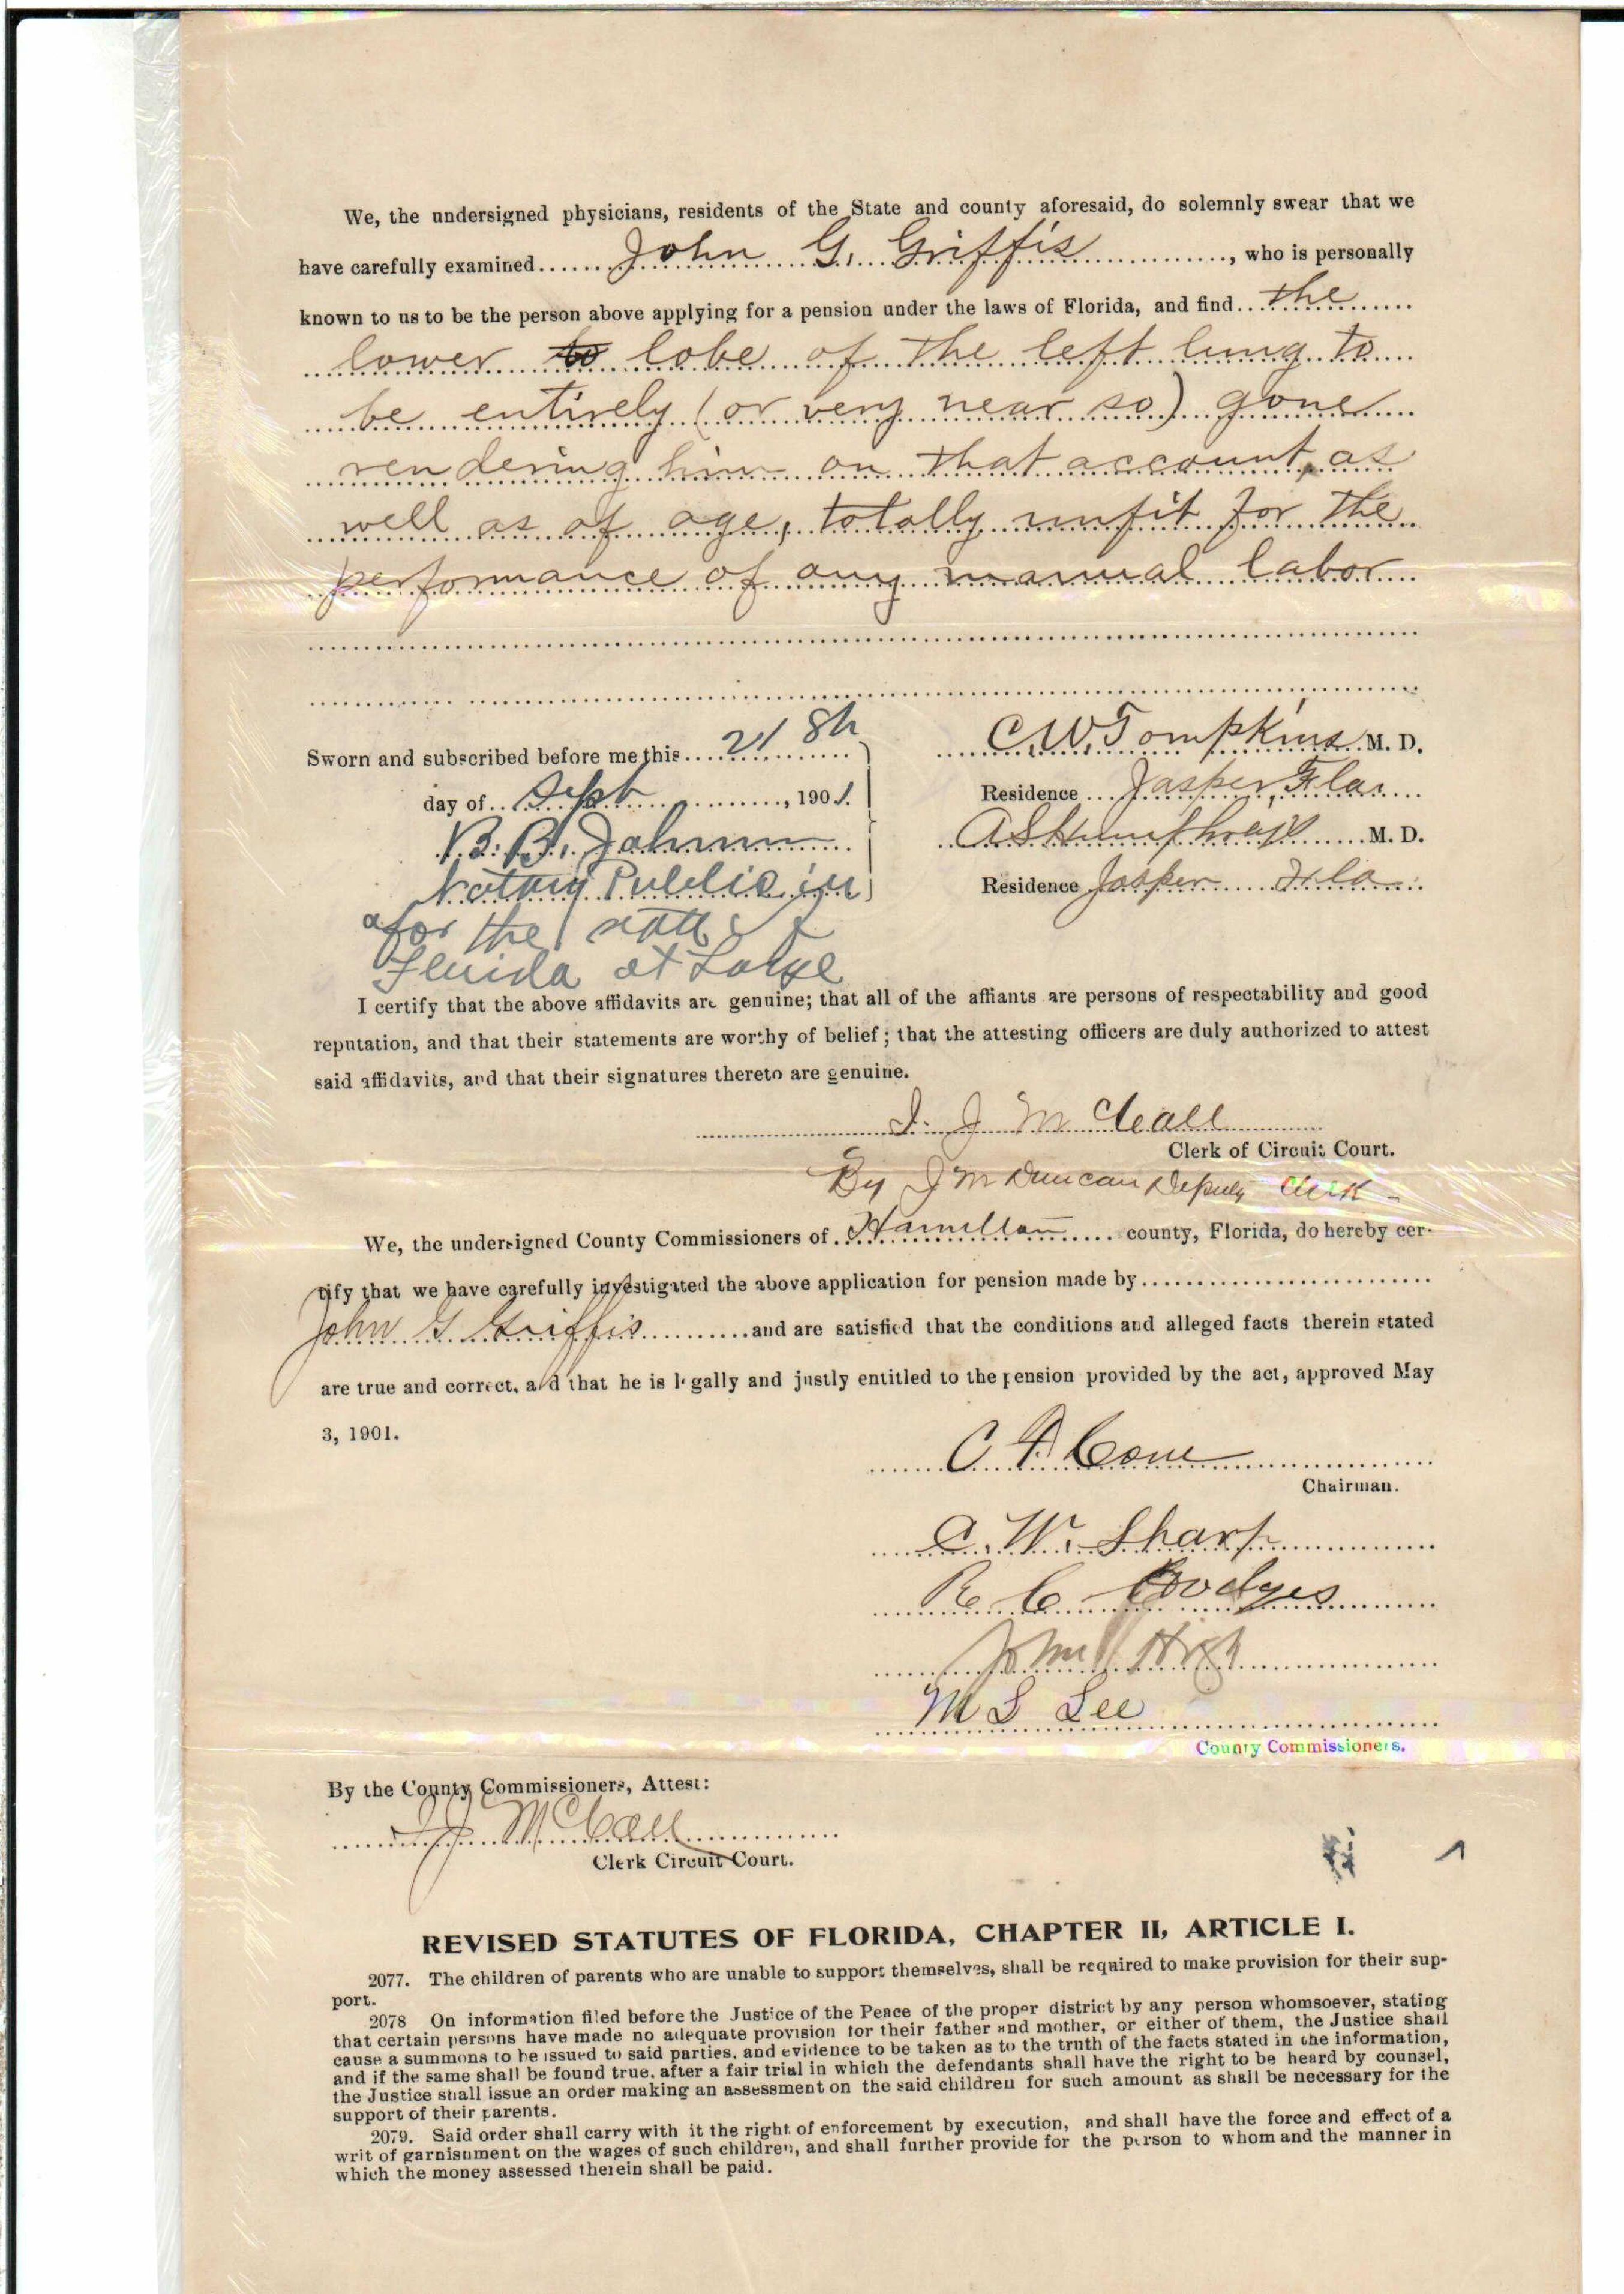 We, the undersigned physicians, residents of the State and county aforesaid, do solemnly swear that we
have carefully examined John G. Griffis, who is personally
known to us to be the person above applying for a pension under the laws of Florida, and find the
lower to lobe of the left lung to
be entirely (or very near so) gone
rendering him on that account, as
well as of age, totally unfit for the
performance of any manual labor
Sworn and subscribed before me this
C. W. Tompkins M. D.
day of Sept, 1901.
Residence Jasper, Fla.
B. B. Johnson
M. D.
Notary Public in
Residence Jasper Fla
for the state
Florida at Large
I certify that the above affidavits are genuine; that all of the affiants are persons of respectability and good
reputation, and that their statements are worthy of belief; that the attesting officers are duly authorized to attest
said affidavits, and that their signatures thereto are genuine.
J. J McCall
Clerk of Circuit Court.
By J M Duncan Deputy Clerk
We, the undersigned County Commissioners of Hamilton county, Florida, do hereby cer-
tify that we have carefully investigated the above application for pension made by
John G Griffis and are satisfied that the conditions and alleged facts therein stated
are true and correct, and that he is legally and justly entitled to the pension provided by the act, approved May
3, 1901.
Cone
Chairman.
C. W. Sharp
R C Hodges
John High
M L Lee
County Commissioners.
By the County Commissioners, Attest:
J J McCall
Clerk Circuit Court.
REVISED STATUTES OF FLORIDA, CHAPTER II, ARTICLE I.
2077. The children of parents who are unable to support themselves, shall be required to make provision for their sup-
port.
2078 On information filed before the Justice of the Peace of the proper district by any person whomsoever, stating
that certain persons have made no adequate provision for their father and mother, or either of them, the Justice shall
cause a summons to be issued to said parties, and evidence to be taken as to the truth of the facts stated in the information,
and if the same shall be found true, after a fair trial in which the defendants shall have the right to be heard by counsel,
the Justice shall issue an order making an assessment on the said children for such amount as shall be necessary for the
support of their parents.
2079. Said order shall carry with it the right of enforcement by execution, and shall have the force and effect of a
writ of garnishment on the wages of such children, and shall further provide for the person to whom and the manner in
which the money assessed therein shall be paid.